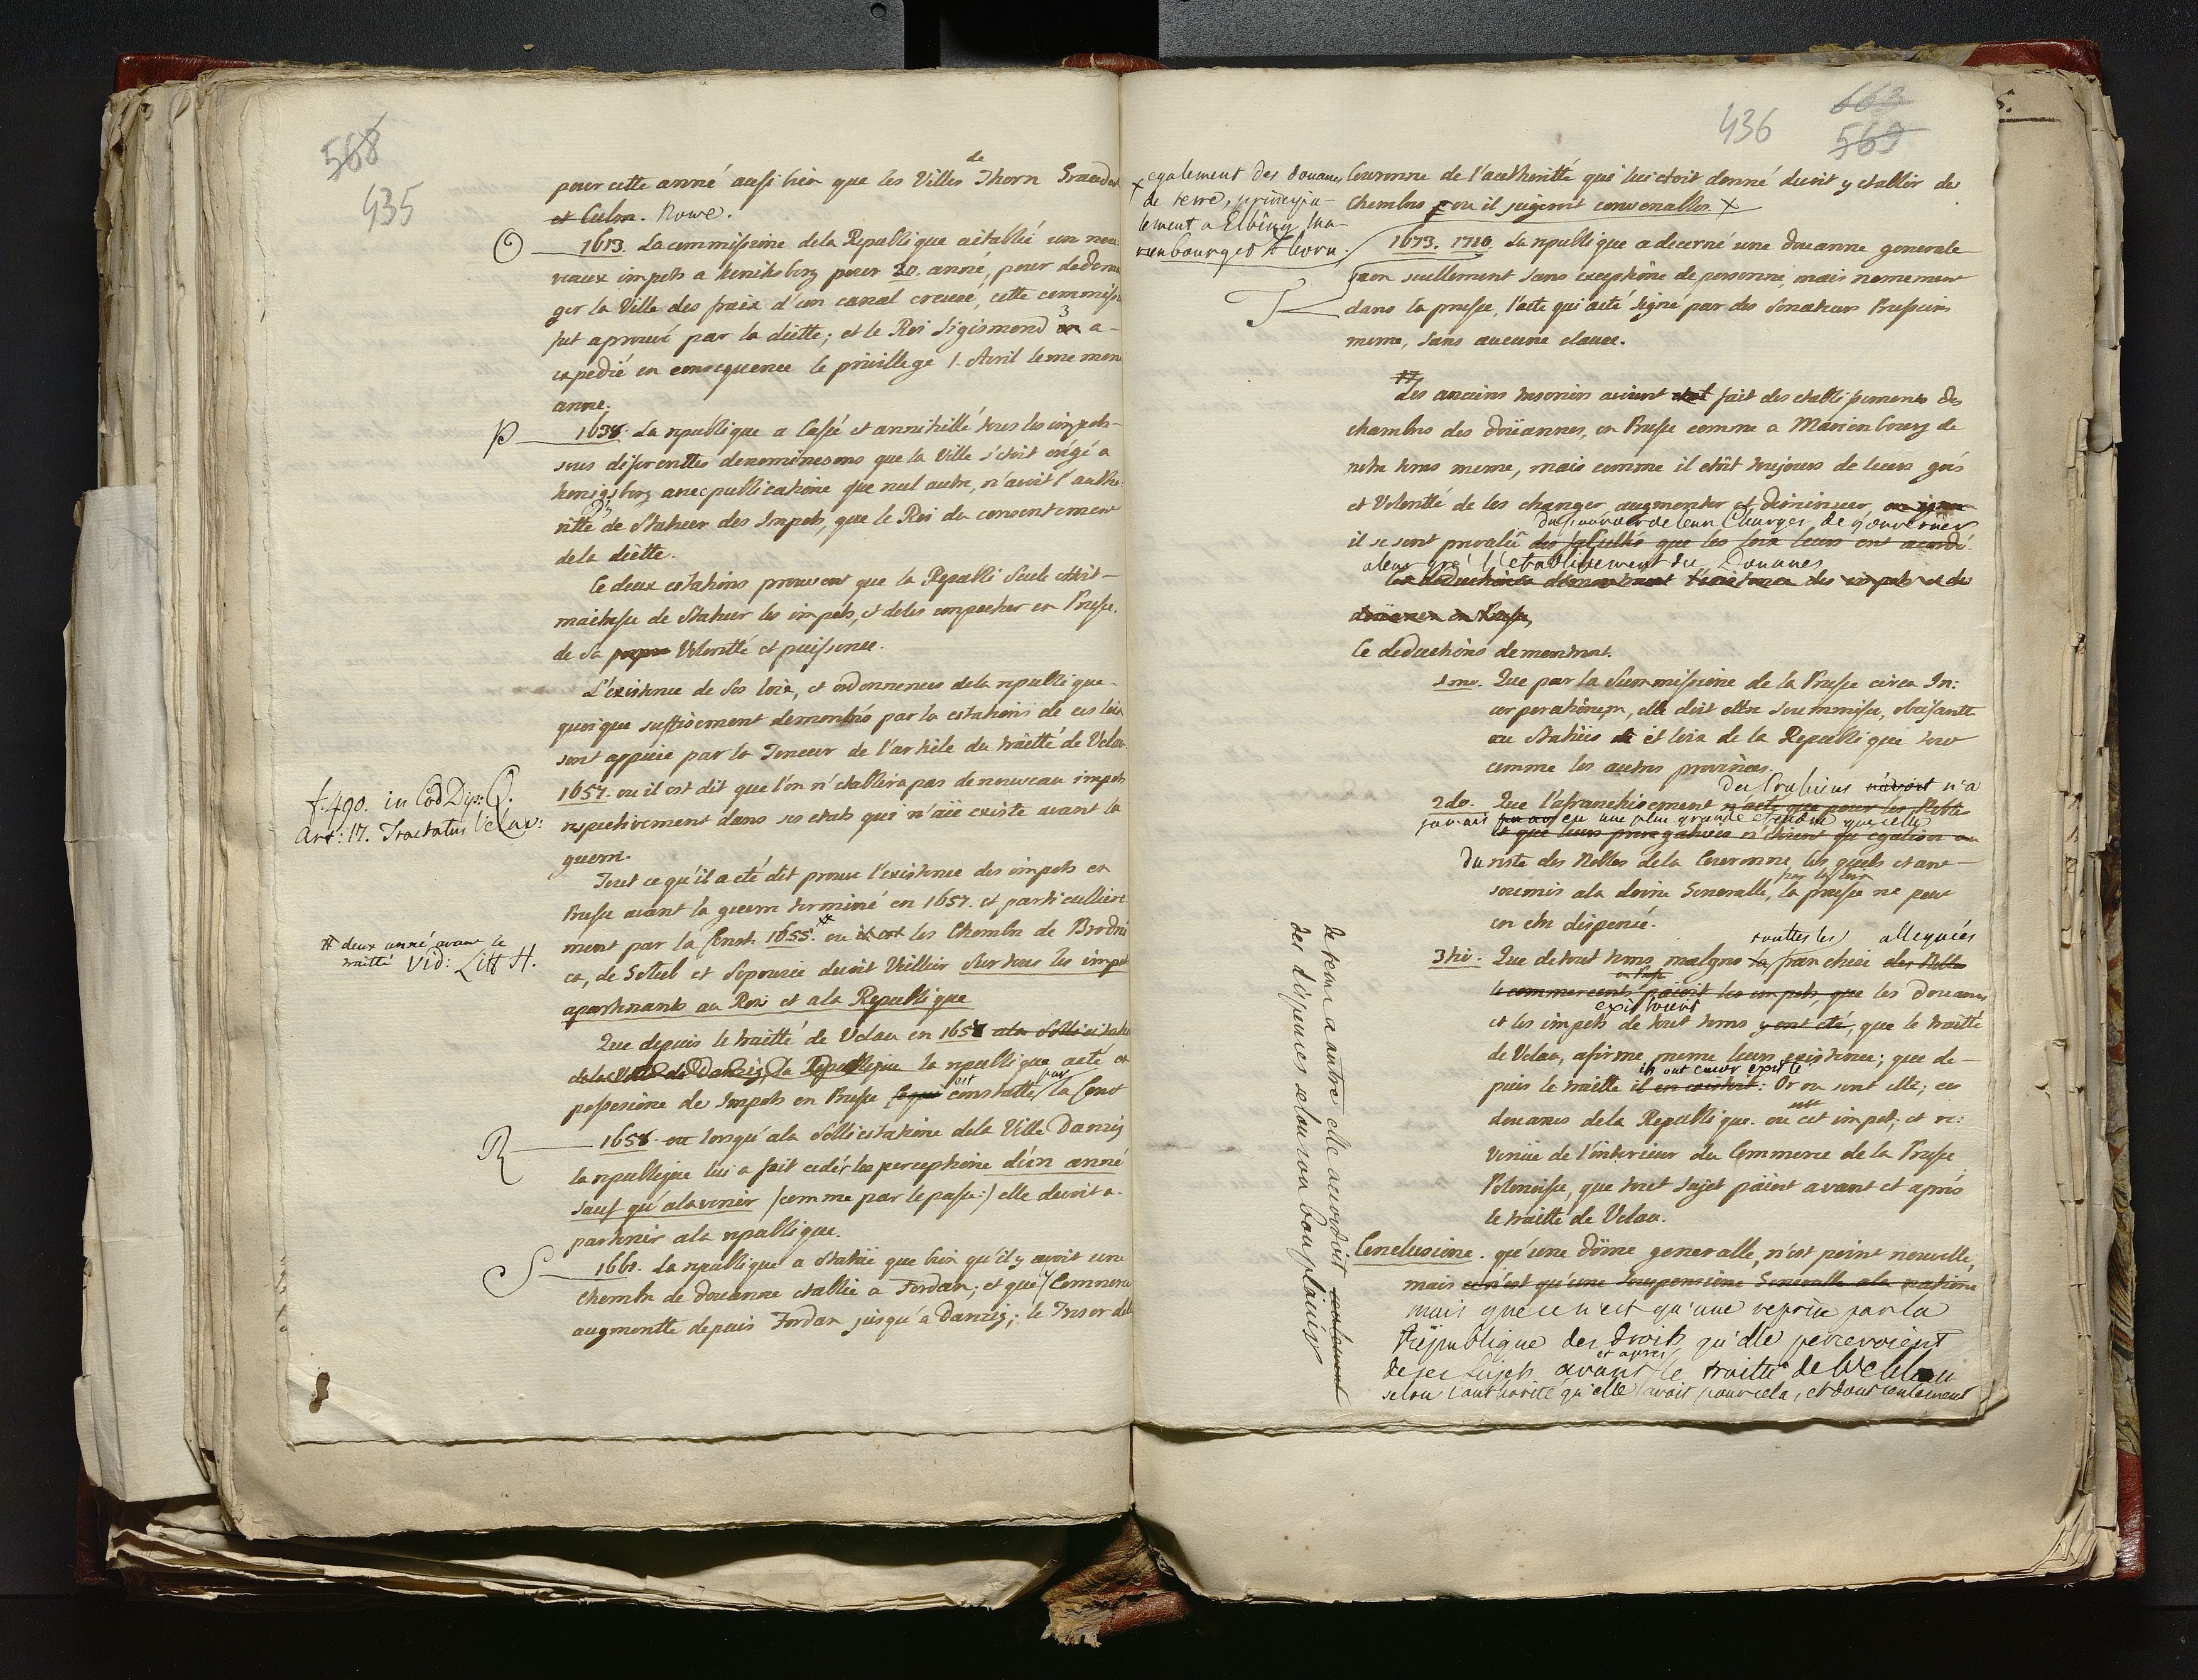 568
435
pour cette anné ausi bien que les Villes de Thorn Grauden
et Culm. Nowe.
O 1613. La commissione dela Republique aétablié un nou
veaux impots a Keniksberg pour 20. année, pour dedoma
ger la Ville des fraix d'un canal creuué, cette commissi
fut aprouvé par la diétte; et le Roi Sigismond 3 a-
expedié en consequence le privillege 1. Avril le meme
anne.
P 1638. La republique a Cassé et annihillé tous les impots-
sous diferenttes denominesons que la Ville s'étoit érigé a
Kenigsberg avec publicatione que nul autre, n'avoit l'autho
ritté de Statuer des Impots, que le Roi du consentement
dela diétte.
Ce deux citations prouvent que la Republi Seule etoit-
maitresse de Statuer les impots, et deles empecher en Prusse.
de Sa propre Volontté et puissence.
L'existence de Ses loix, et ordonnences dela republique-
quoique suffisoment demontrés par la citations de ces loix
sont appuiée par la Teneur de l'article du traitté de Velau
1657. ou il est dit que l'on n'etablira pas de nouveau impots
respectivement dans ses etats qui n'aïe existe avant la
guerre.
f. 490. in Cod Dip: Q.
Art: 17. Tractatus Velav:
Tout ce qu'il a eté dit prouve l'existence des impots en
Prusse avant la guerre terminé en 1657. et particulliere
ment par la Const: 1655. ou il est les Chembre de Brodni
ce, de Golub et Soponzie devoit Viellier Sur tous les impots
apartenants au Roi et ala Republique
# deux anné avant le
traitté Vid: Litt H.
Que depuis le traitté de Velau en 1658 ala Sollicitatio
dela Ville de Danzig, la Republique la republique aeté en
possesione de Impots en Prusse ce qui est constatté par la Const
R 1658. ou lorsqu'ala Sollicitatione dela Ville Danzig
la republique lui a fait cedér la perceptione d'un anné
sauf qu'alavenir (comme par le passé:) elle devoit a-
partenir ala republique.
S 1661. La republique a Statué que bien qu'il y avoit une
Chembre de douanne etablie a Fordan, et que / Commerce
augmentte depuis Fordan jusqu'a Danzig; le Tresor dela
436
663
569
x egalement des douanes
de terre, principa-
lement a Elbing Ma-
rienbourg et Thorn.
Couronne de l'authoritté qui lui etoit donné devoit y etablir des
Chembres ou il jugeroit convenables. X
T 1673. 1710. La republique a decerné une douanne generale
non seullement sans exceptione de personne, mais nomement
dans la prusse, l'acte qui aété Signé par des Senateurs Prussiens
meme, Sans aucune clause.
Les anciens tresoriers avient fait des etablissements des
chambres des doüannes, en Prusse comme a Marienbourg de
notre tems meme, mais comme il etoit toujours de leurs grés
et Volontté de les changer augmenter et diminuer,
il se sont prevalû des facultés que les loix leurs ont acordé.
du pouvoir de leurs Charges, de gouverner
aleur gré l'etablissement des Douanes
les deductions demontrent l'existence des impots et des
doüanes en Prusse,
Ce deductions demontrent.
1mo. Que par la Summissione de la Prusse circa In:
corporationem, elle doit etre Soummise, obeïsante
au Statuts et loix de la Republique tout
comme les autres provinces.
2do. Que l'afranchisement des Prussiens n'avoit n'a
n'aeté que pour les Nobles
jamais eu une plus grande etendue que celle
et que leurs prerogatives n'etoient qu'egalisées au
du reste des Nobles dela Couronne, les quels etant-
soumis ala doine Generalle, par les loix la prusse ne peut
en etre dispensé.
3tio. Que detout tems, malgré touttes les franchises alleguées des Nobles
le commercents païoit les impots, que les Douanes
en Prusse
et les impots de tout tems existoient y ont eté, que le traitté
de Velau, afirme meme leurs existence; que de-
puis le traitte ils ont encor existé il en existoit: Or ou sont elle, ces
douanes dela Republique. ou est cet impot, et re:
venüe de l'interieur du Commerce de la Prusse
Polonoise, que tout Sujet païoit avant et aprés
le traitté de Velau.
Conclusione. qu'une doïne generalle, n'est point nouvelle,
mais ce n'est qu'une Suspensione Generalle ala natione
mais que ce n'est qu'une reprise par la
Republique des droits qu'elle percevoient
de ses Sujets avant et aprés le traitté de Wehlau
selon l'authorité qu'elle avoit pour cela, et dont seulement
de tems a autre elle accordoit seulement
des dispenses selon son bon plaisir